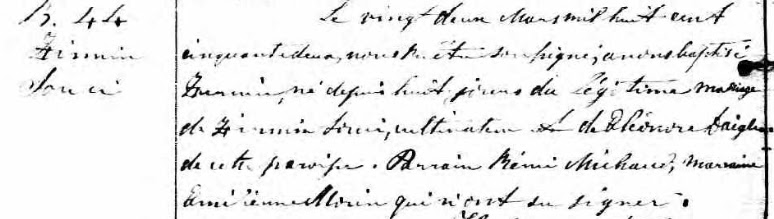 B. 44
Firmin
Souci
Le vingt deux Mars mil huit cent
cinquante deux, nous Ptre soussigné, avons baptisé
Firmin, né depuis huit jours du légitime mariage
de Firmin Souci, cultivateur & de Eléonore Daigle
de cette paroisse. Parrain Rémi Michaud, marraine
Emilienne Morin qui n'ont su signer.